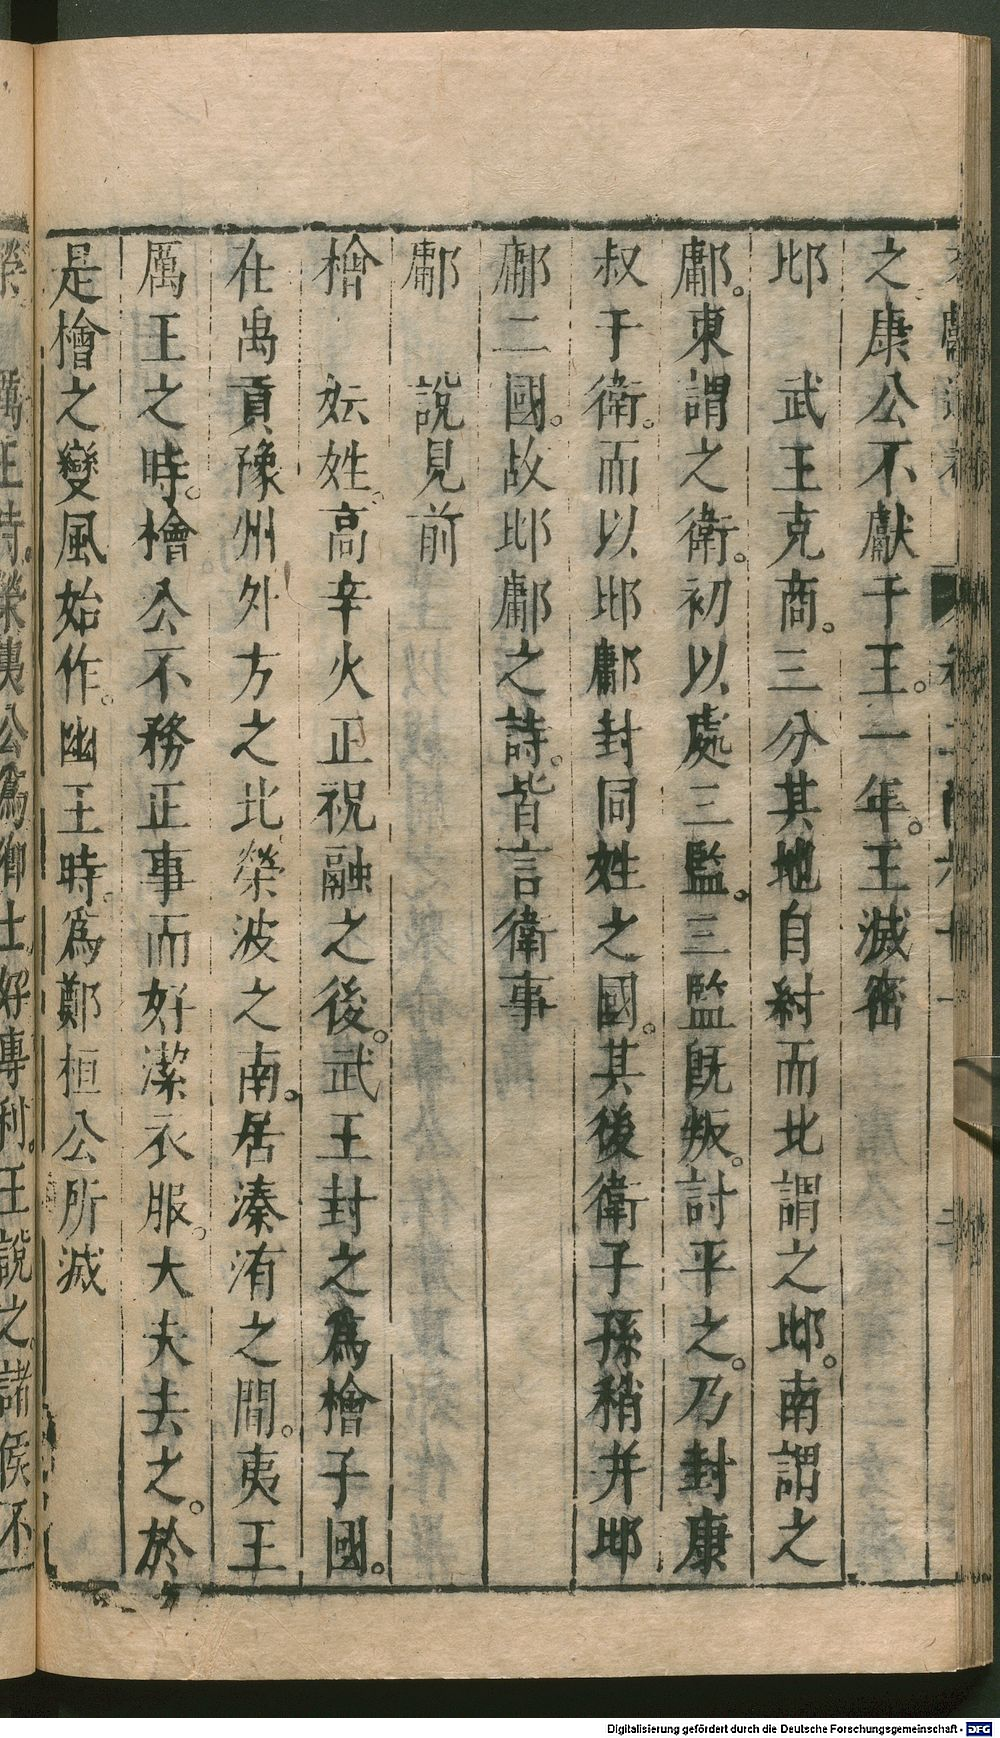 之康公不獻于王。一年。王滅密
邶　武王克商。三分其地自紂而北謂之邶。南謂之
鄘。東謂之衛。初以處三監。三監既叛。討平之。乃封康
叔于衛。而以邶鄘封同姓之國。其後衛子孫稍并邶
鄘二國。故邶鄘之詩。皆言衛事
鄘　說見前
檜　妘姓。高辛火正祝融之後。武王封之爲檜子國。
在禹貢豫州外方之北榮波之南。居溱洧之間。夷王
厲王之時。檜公不務正事而好潔衣服。大夫去之。於
是檜之變風始作。幽王時。爲鄭桓公所滅
榮　厲王時。榮夷公爲卿士好專利。王說之。諸侯不
Digitalisierung gefördert durch die Deutsche Forschungsgemeinschaft - DFG